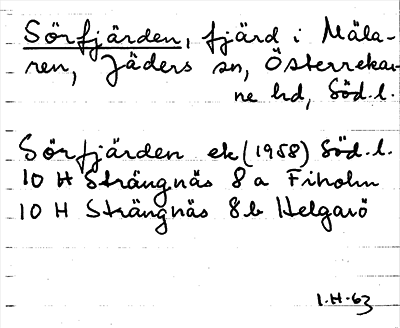 Sörfjärden, fjärd i Mäla-
ren, Jäders sn, Österrekar-
ne hd, Söd.l.
Sörfjärden ek (1958) Söd.l.
10 H Strängnäs 8 a Fiholm
10 H Strängnäs 8 b Helgarö
I.H-63